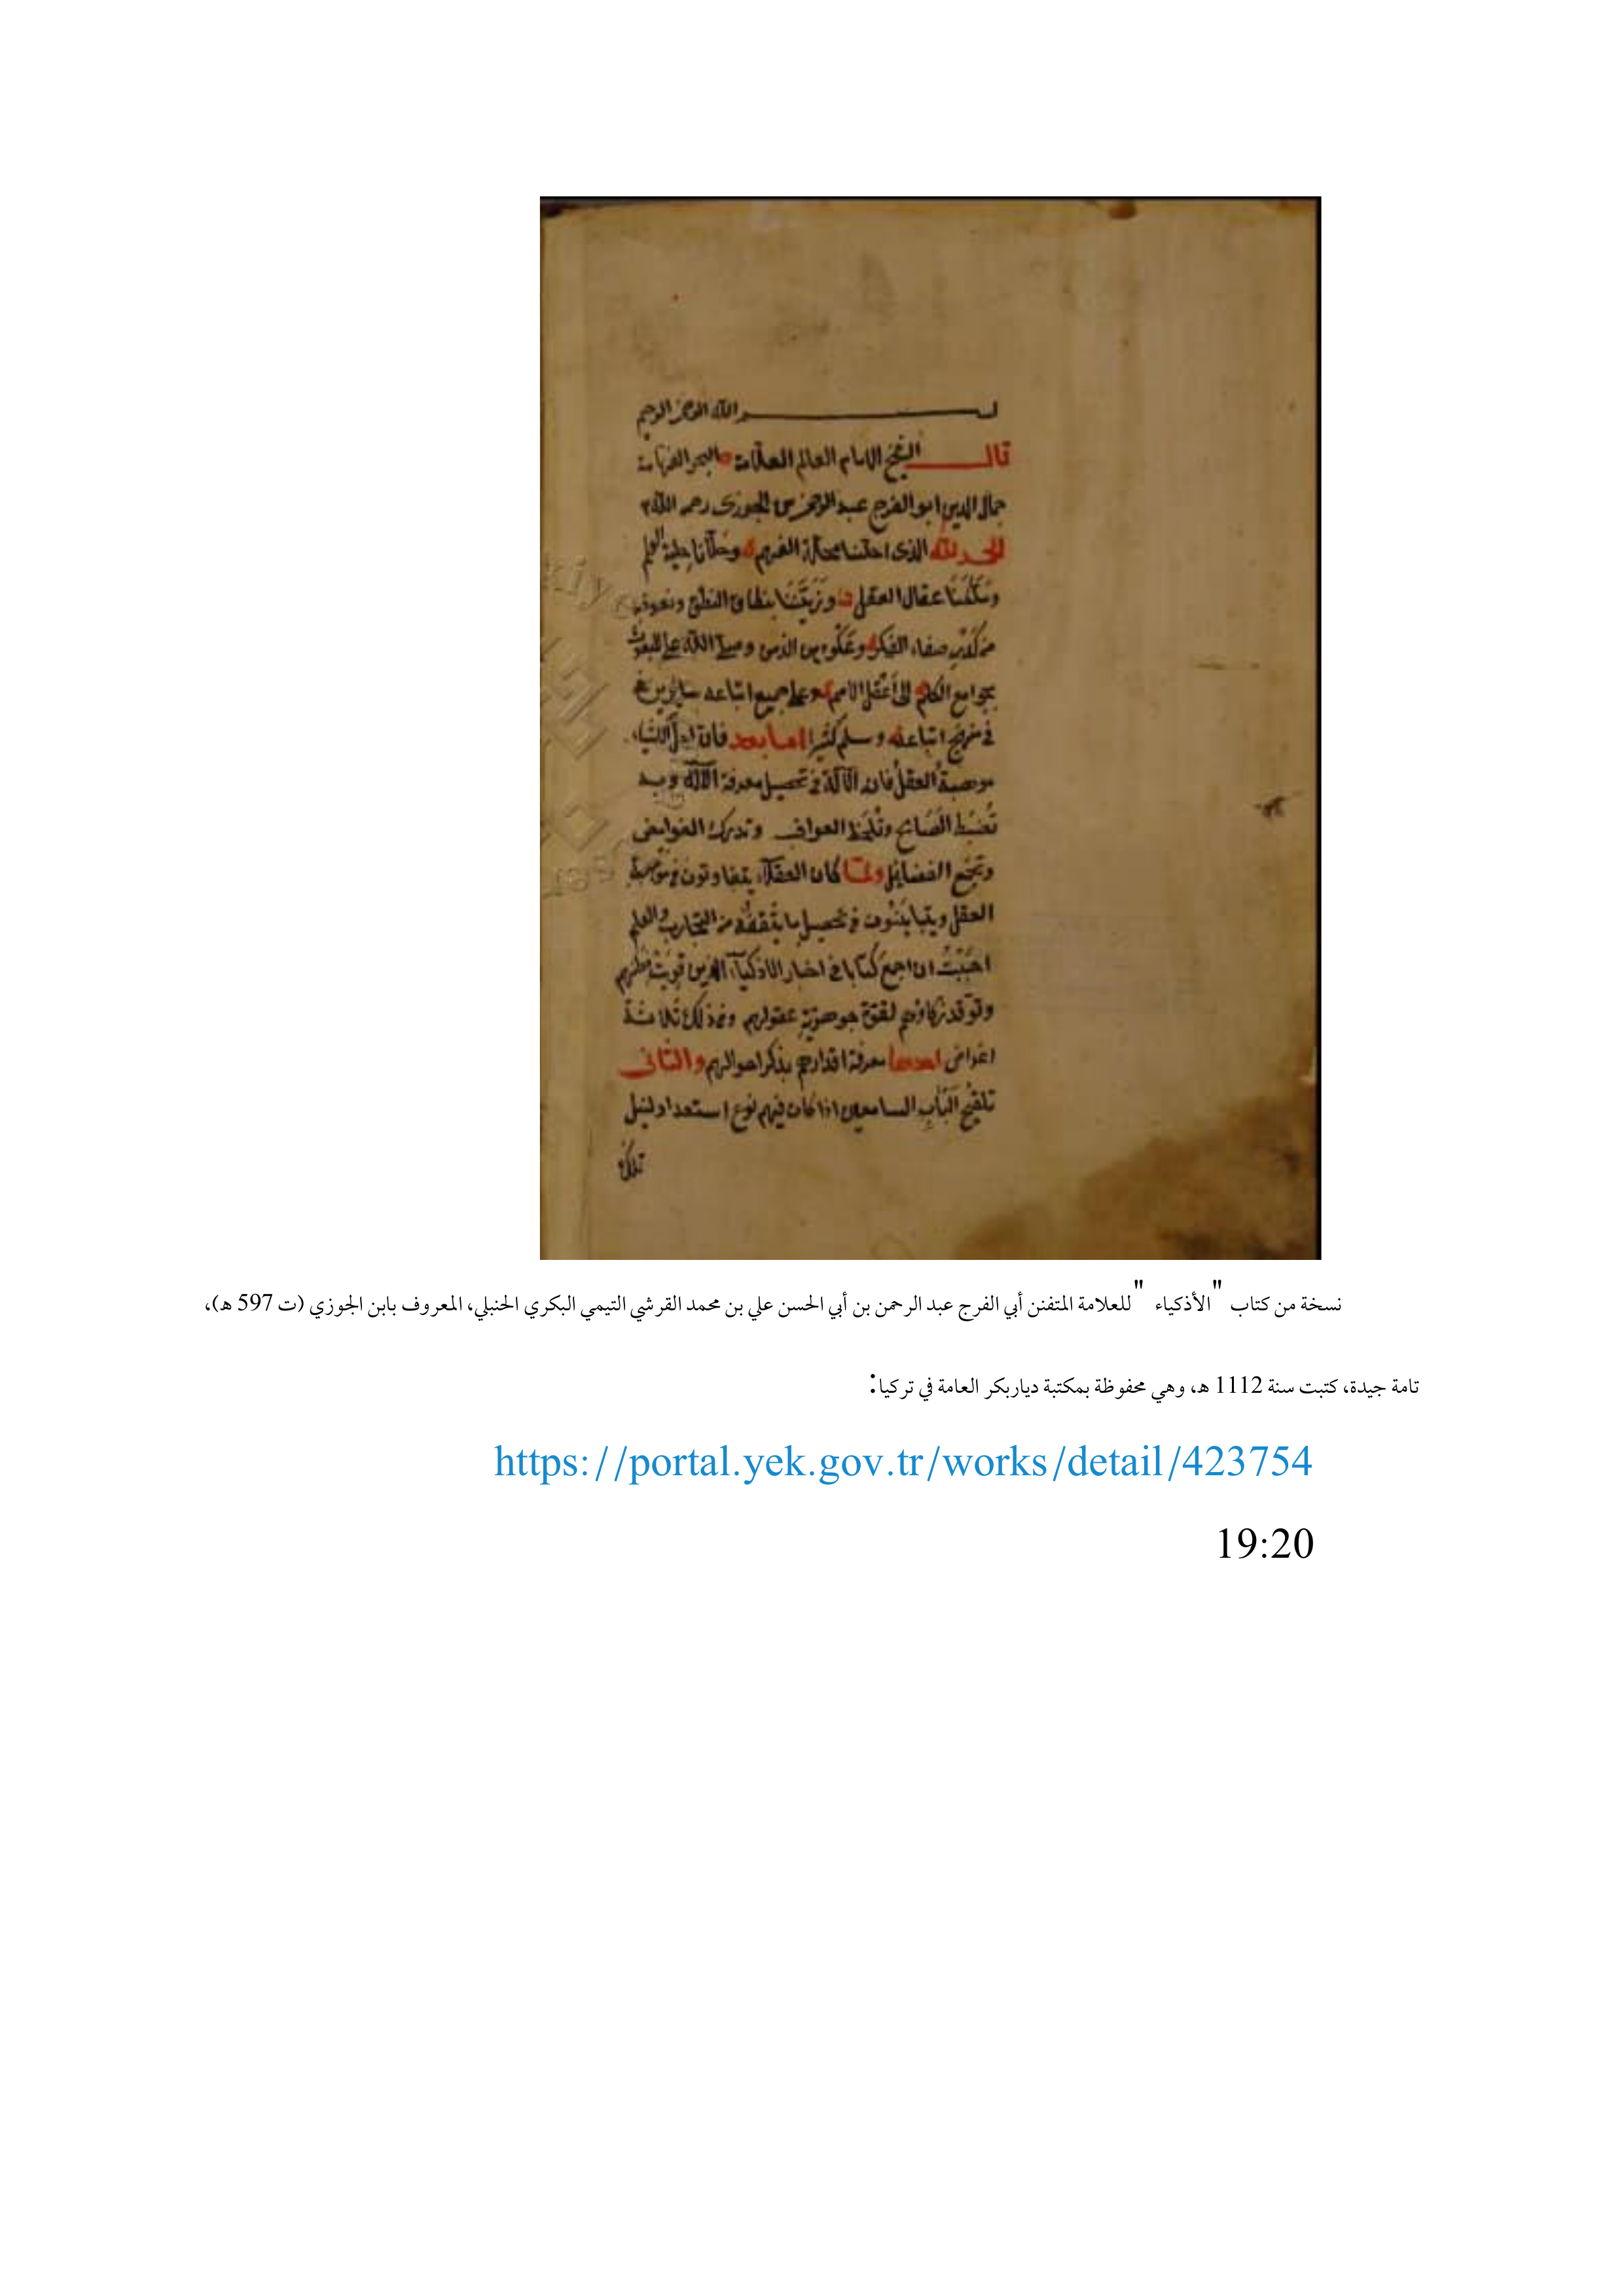 بسم الله الرحمن الرحيم
قال الشيخ الامام العالم العلامة والبحر الفهامة
جمال الدين ابو الفرج عبد الرحمن بن الجوزى رحمه الله
الحمد لله الذى احلنا محلة الفهم وحلانا حلية العلم
عقال العقل وزيننا بنطاق النطق ونعوذ به
من كدر صفاء الفكر وعكوه بين الذهن وصلى الله على المبعوث
بجوامع الكلم الى اعقل الامم وعلى جميع اتباعه
فى منهج اتباعه وسلم كثيرا اما بعد فان اجل الاشياء
موهبة العقل فانه الآلة فى تحصيل معرفة الاله وبه
تضبط المصالح وتلحظ العواقب وتدرك الغوامض
وتجمع الفضايل ولما كان العقلاء يتفاوتون فى موهبة
العقل ويتباينون فى تحصيل ما يثقفه من التجارب والعلم
احببت ان اجمع كتابا فى اخبار الاذكياء الذين قويت فطنهم
وتوقد ذكاؤهم لقوة جوهرية عقولهم وفى ذلك ثلاثة
اغراض احدها معرفة اقدارهم بذكر احوالهم والثانى
تلقيح الباب السامعين اذا كان فيهم نوع استعداد لنيل
تلك
نسخة من كتاب "الأذكياء" للعلامة المتفنن أبي الفرج عبد الرحمن بن أبي الحسن علي بن محمد القرشي التيمي البكري الحنبلي، المعروف بابن الجوزي (ت 597 هـ)،
تامة جيدة، كتبت سنة 1112 هـ، وهي محفوظة بمكتبة دياربكر العامة في تركيا:
https://portal.yek.gov.tr/works/detail/423754
19:20